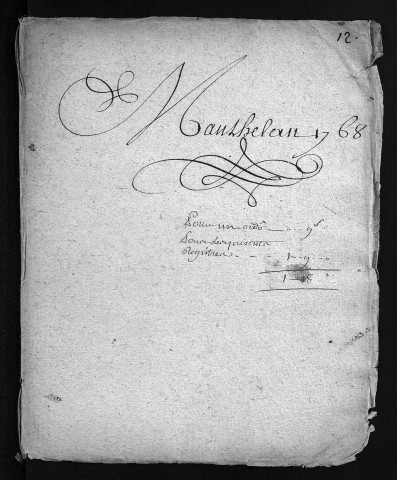 12.
Manthelan 1768
Pour un ordô - - 9ˢ
Pour les présents
Registres - - 1 - 9 - -
1 - 18